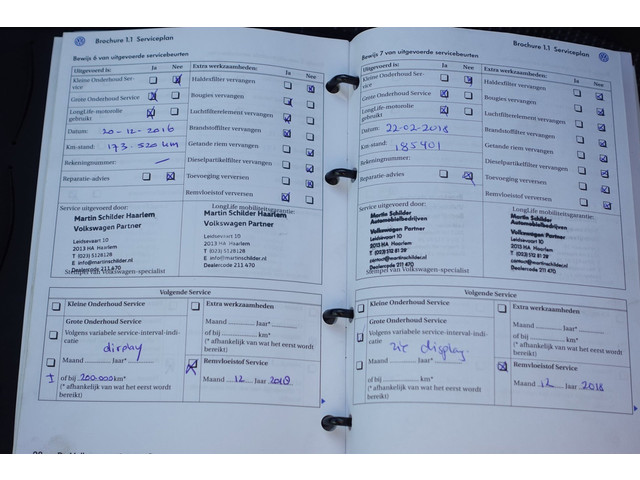 Brochure 1.1 Serviceplan
Bewijs 6 van uitgevoerde servicebeurten
Uitgevoerd is: Ja Nee
Kleine Onderhoud Ser-
vice
Grote Onderhoud Service
LongLife-motorolie
gebruikt
Datum: 20-12-2016
Km-stand: 173.520 km
Rekeningnummer:
Reparatie-advies
Extra werkzaamheden: Ja Nee
Haldexfilter vervangen
Bougies vervangen
Luchtfilterelement vervangen
Brandstoffilter vervangen
Getande riem vervangen
Dieselpartikelfilter vervangen
Toevoeging verversen
Remvloeistof verversen
Service uitgevoerd door:
LongLife mobiliteitsgarantie:
Martin Schilder Haarlem
Volkswagen Partner
Leidsevaart 10
2013 HA Haarlem
T (023) 5128128
E info@martinschilder.nl
Dealercode 211 470
Martin Schilder Haarlem
Volkswagen Partner
Leidsevaart 10
2013 HA Haarlem
T (023) 5128128
E info@martinschilder.nl
Dealercode 211 470
Stempel van Volkswagen-specialist
Volgende Service
Kleine Onderhoud Service
Grote Onderhoud Service
Volgens variabele service-interval-indi-
catie
display
Maand Jaar*
of bij 200.000 km*
(* afhankelijk van wat het eerst wordt
bereikt)
Extra werkzaamheden
Maand Jaar*
of bij km*
(* afhankelijk van wat het eerst wordt
bereikt)
Remvloeistof Service
Maand 12 Jaar 2018
Brochure 1.1 Serviceplan
Bewijs 7 van uitgevoerde servicebeurten
Uitgevoerd is: Ja Nee
Kleine Onderhoud Ser-
vice
Grote Onderhoud Service
LongLife-motorolie
gebruikt
Datum: 22-02-2018
Km-stand: 185401
Rekeningnummer:
Reparatie-advies
Extra werkzaamheden: Ja Nee
Haldexfilter vervangen
Bougies vervangen
Luchtfilterelement vervangen
Brandstoffilter vervangen
Getande riem vervangen
Dieselpartikelfilter vervangen
Toevoeging verversen
Remvloeistof verversen
Service uitgevoerd door:
LongLife mobiliteitsgarantie:
Martin Schilder
Automobielbedrijven
Volkswagen Partner
Leidsevaart 10
2013 HA Haarlem
T (023) 512 81 28
contact@martinschilder.nl
Dealercode 211 470
Martin Schilder
Automobielbedrijven
Volkswagen Partner
Leidsevaart 10
2013 HA Haarlem
T (023) 512 81 28
contact@martinschilder.nl
Dealercode 211 470
Stempel van Volkswagen-specialist
Volgende Service
Kleine Onderhoud Service
Grote Onderhoud Service
Volgens variabele service-interval-indi-
catie
zie display
Maand Jaar*
of bij km*
(* afhankelijk van wat het eerst wordt
bereikt)
Extra werkzaamheden
Maand Jaar*
of bij km*
(* afhankelijk van wat het eerst wordt
bereikt)
Remvloeistof Service
Maand 12 Jaar 2018